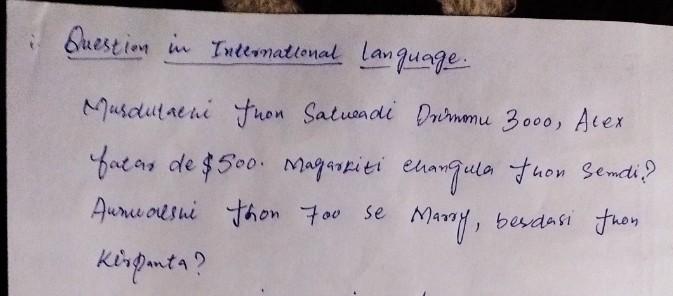 Question in International Language.
Musdulachi thon Satueadi Drimonu 3000, Alex
falar de $500. Magarkiti changula thon Semdi?
thon 700 se Marry, besdasi thon
Kirpanta?